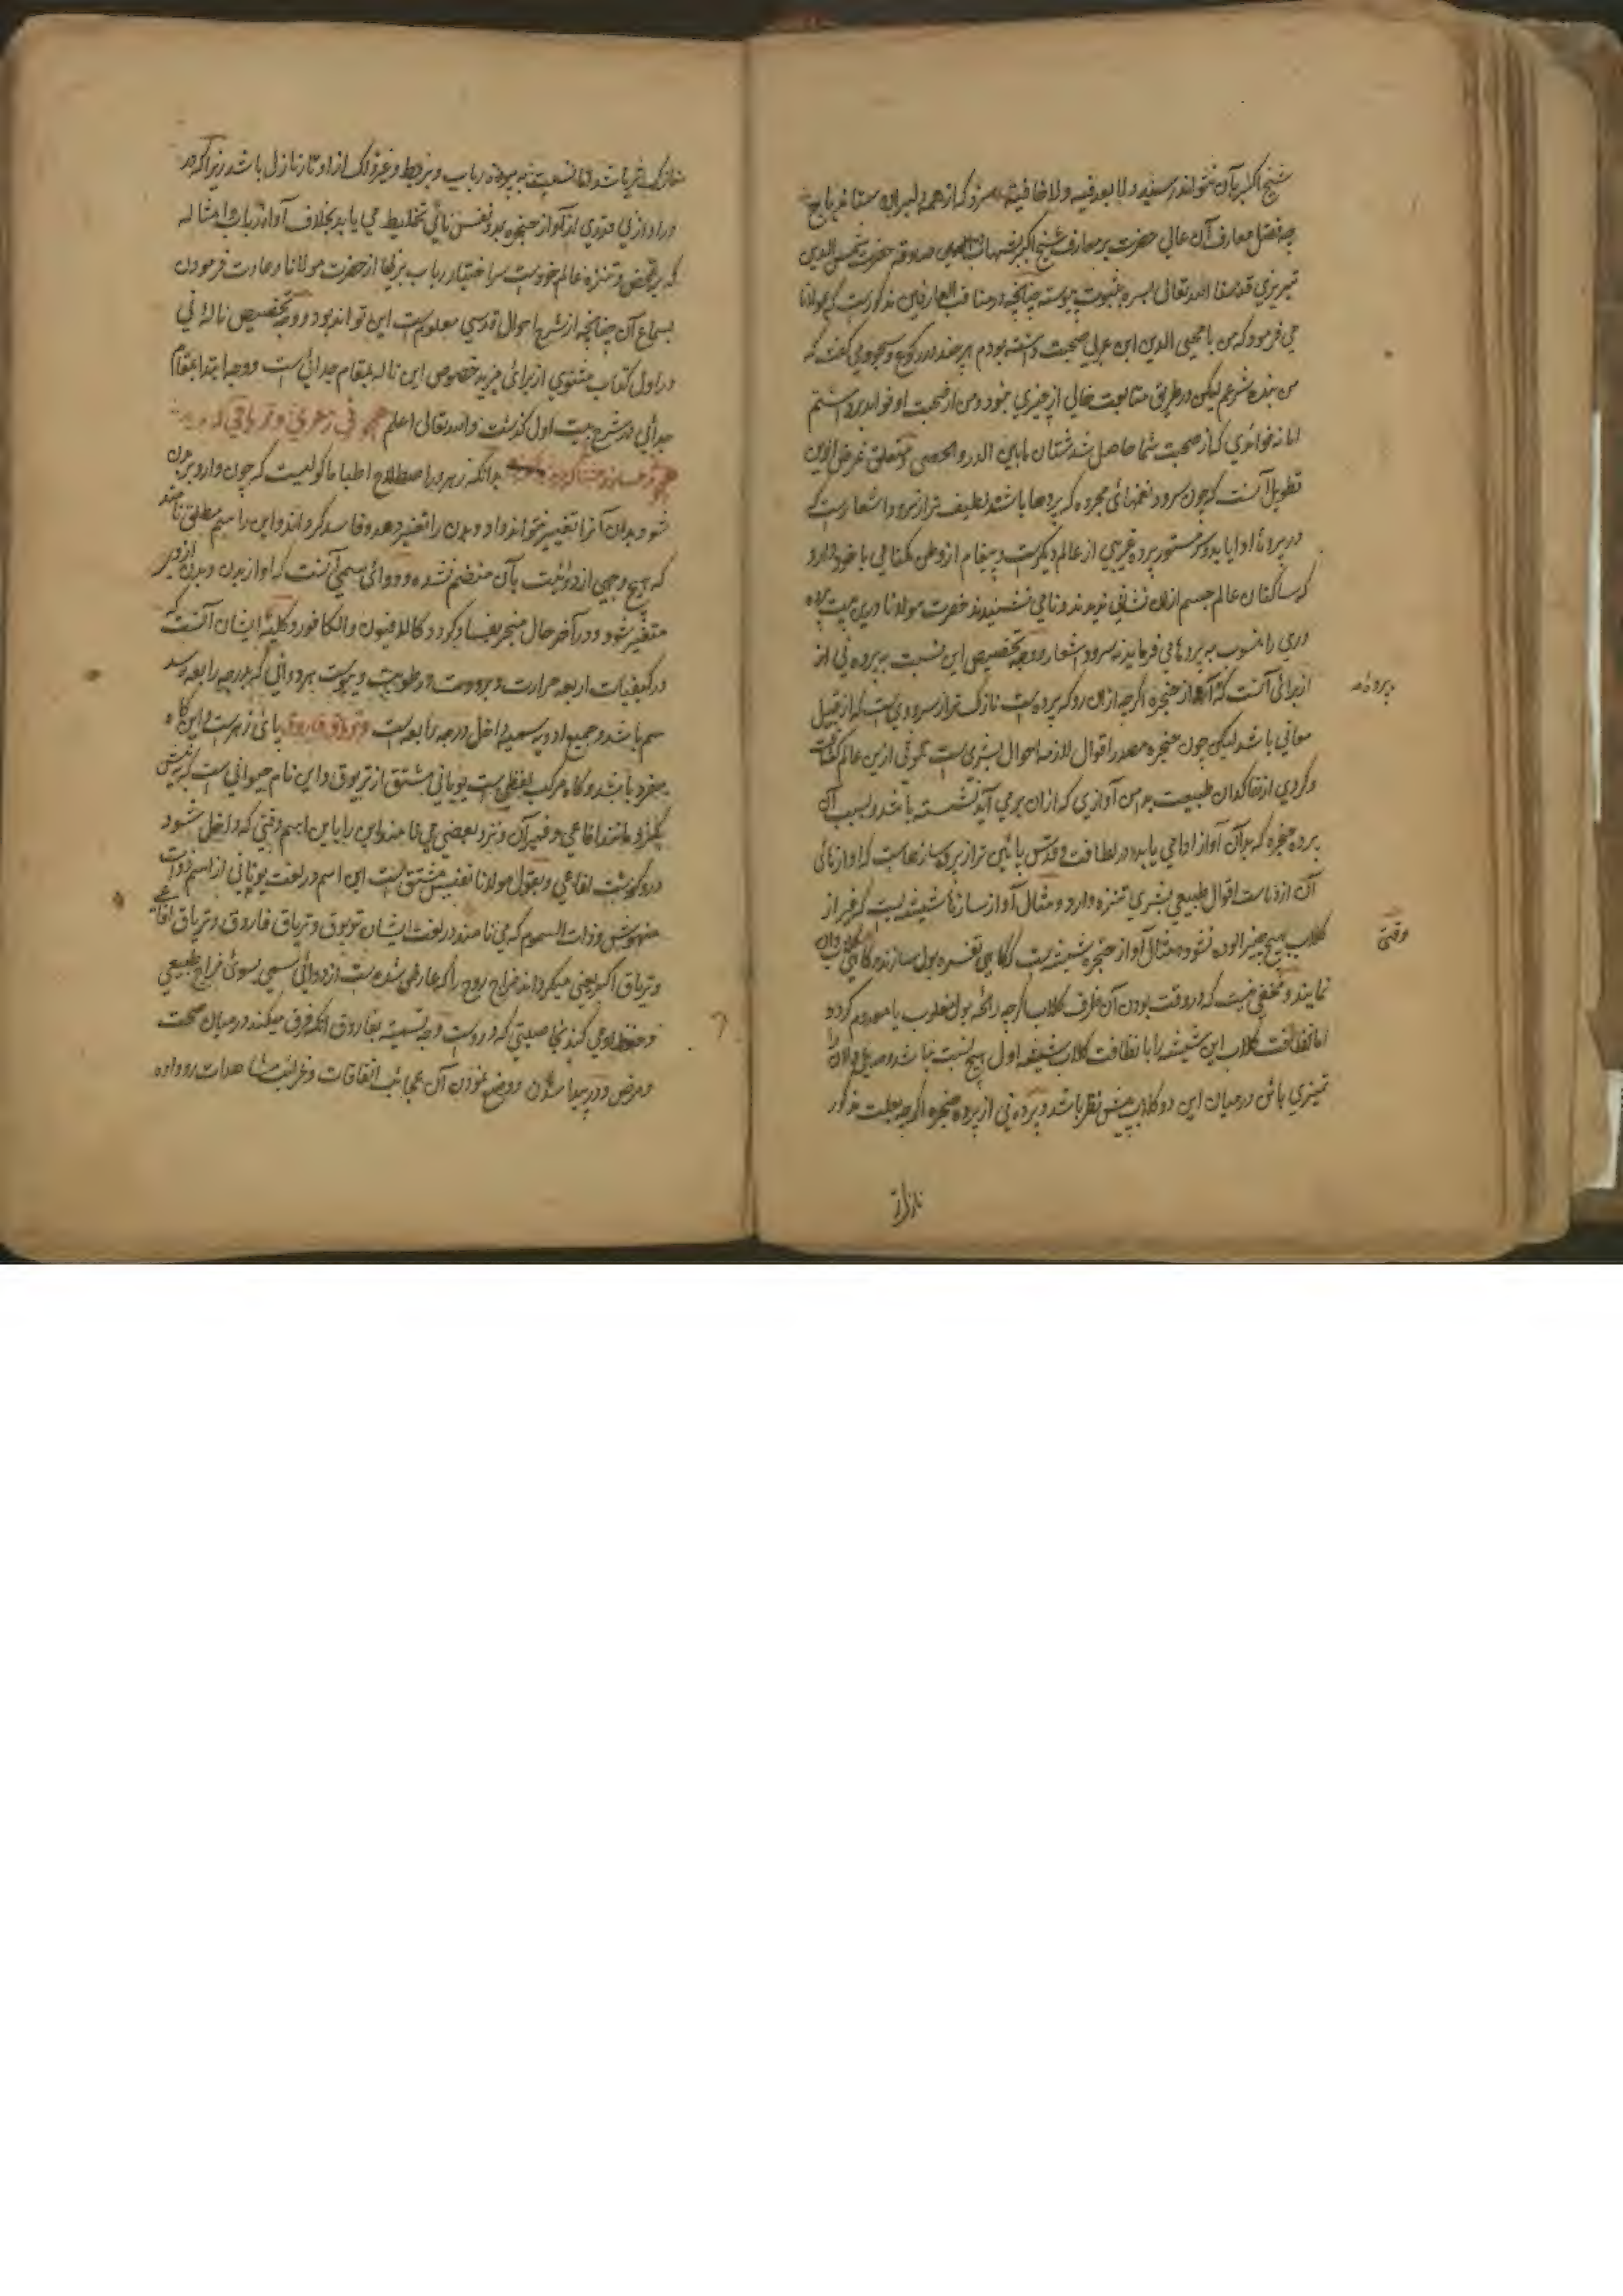 شیخ اکبر بآن نتواند رسید و لا بعد فیه و لا خافیة
چه فضل معارف آن عالی حضرت بر معارف شیخ اکبر بشهادت حضرت شمس الدین
تبریزی قدسنا الله تعالی بسره بثبوت پیوسته چنانچه در مناقب العارفین مذکورست که مولانا
می فرمود که من با محیی الدین ابن عربی صحبت داشته بودم هر چند در رکوع و سجود می گفت که
من بنده شرعم لیکن در طریق متابعت خالی از چیزی نبود و من از صحبت او فواید برداشتم
اما نه فوائدی که از صحبت شما حاصل شد شتان ما بین الدر و الحصی و متعلق غرض ازین
تطویل آنست که چون سرود نغمهای مجرده که پردها باشند لطیف تر از سرود اشعارست که
در پرده ادا یابد و سر مستور پرده غریبی از عالم دیگرست و پیغام از وطن مکتفا می با خود دارد
که ساکنان عالم جسم ازان نشانی ندیدند و نامی نشنیدند حضرت مولانا درین بیت پرده
دری را منسوب به پردها می فرمایند نه سرود اشعار و وجه تخصیص این نسبت به پرده نی از
برای آنست که آواز حنجره اگرچه ازان رو که پرده است نازک تر از سرودیست که از قبیل
پرده
معانی باشد لیکن چون حنجره مصدر اقوال لازمه احوال بشری است لوثی ازین عالم کثافت
و گردی از خاکدان طبیعت بدامن آوازی که ازان بر می آید نشسته باشد و بسبب آن
پرده حنجره که بدان آواز ادا می یابد در لطافت و قدس پائین تر از پرده سازهاست که آواز نای
آن از دناست اقوال طبیعی بشری تنزه دارد و مثال آواز ساز شیشه ایست که غیر از
گلاب بهیچ چیز آلوده نشود و مثال آواز حنجره شیشه ایست که گاهی تفسره بول سازند و گاهی گلابدان
وقتی
نمایند و مخفی نیست که در وقت بودن آن ظرف گلاب اگرچه رائحه بول مغلوب یا معدوم گردد
اما نظافت گلاب این شیشه را با نظافت گلاب شیشه اول هیچ نسبت نباشد
تمیزی باش در میان این دو گلاب پیش نظر باشد و پرده نی از پرده حنجره اگرچه بعلت مذکور
نازکتر
نازکتر باشد اما نسبت به پرده رباب و بربط و غیر ذلک از اوتار نازل باشد زیرا که در
در آوازنی قدری از آواز حنجره بدو نفس نائی تخلیط می یابد بخلاف آواز رباب و امثاله
که بر تمحض و تنزه عالم خودست سر اختیار رباب بر نیها از حضرت مولانا و عادت فرمودن
بسماع آن چنانچه از شرح احوال قدسی معلومست این تواند بود و وجه تخصیص ناله نی
در اول کتاب مثنوی از برای مزید خصوص این ناله بمقام جدائی است و وجه ابتدا بمقام
جدائی در شرح بیت اول گذشت والله تعالی اعلم همچو نی زهری و تریاقی که دید
همچو نی دمساز و مشتاقی که دید بدانکه زهر در اصطلاح اطبا ماکولیست که چون وارد بر بدن
شود بدن آنرا تغییر نتواند داد و بدن را تغییر دهد و فاسد گرداند و این را سم مطلق نامند
که بهیچ وجهی از دوائیت بآن منضم نشده و دوائی سمی آنست که او از بدن و بدن ازو
متغیر شود و در آخر حال منجر بفساد گردد کالافیون والکافور و کلیه ایشان آنست که
در کیفیات اربعه حرارت و برودت و رطوبت و یبوست هر دوائی که بدرجه رابعه رسد
سم باشد و جمیع ادویه سمیه داخل درجه رابعه است و تریاق فاروق پای زهرست و این گاه
مفرد باشد و گاه مرکب لفظی است یونانی مشتق از تریوق و این نام حیوانی است که نیش
بگزد مانند افاعی و غیر آن و نزد بعضی می نامند این را باین اسم وقتی که داخل شود
درو گوشت افاعی و بقول مولانا نفیس مشتق است این اسم در لغت یونانی از اسم ذوات
منهوش و ذات السموم که می نامند در لغت ایشان تریوق و تریاق فاروق و تریاق افاعی
و تریاق اکبر یعنی میگرداند مزاج روح را که عارض شده است از دوائی سمی بسوی مزاج طبیعی
و حفظ او می کند بخاصیتی که دروست وجه تسمیه بفاروق آنکه فرق میکند در میان صحت
و مرض و در پیدا شدن و وضع نمودن آن عجائب اتفاقات و غرائب مشاهدات رو داده